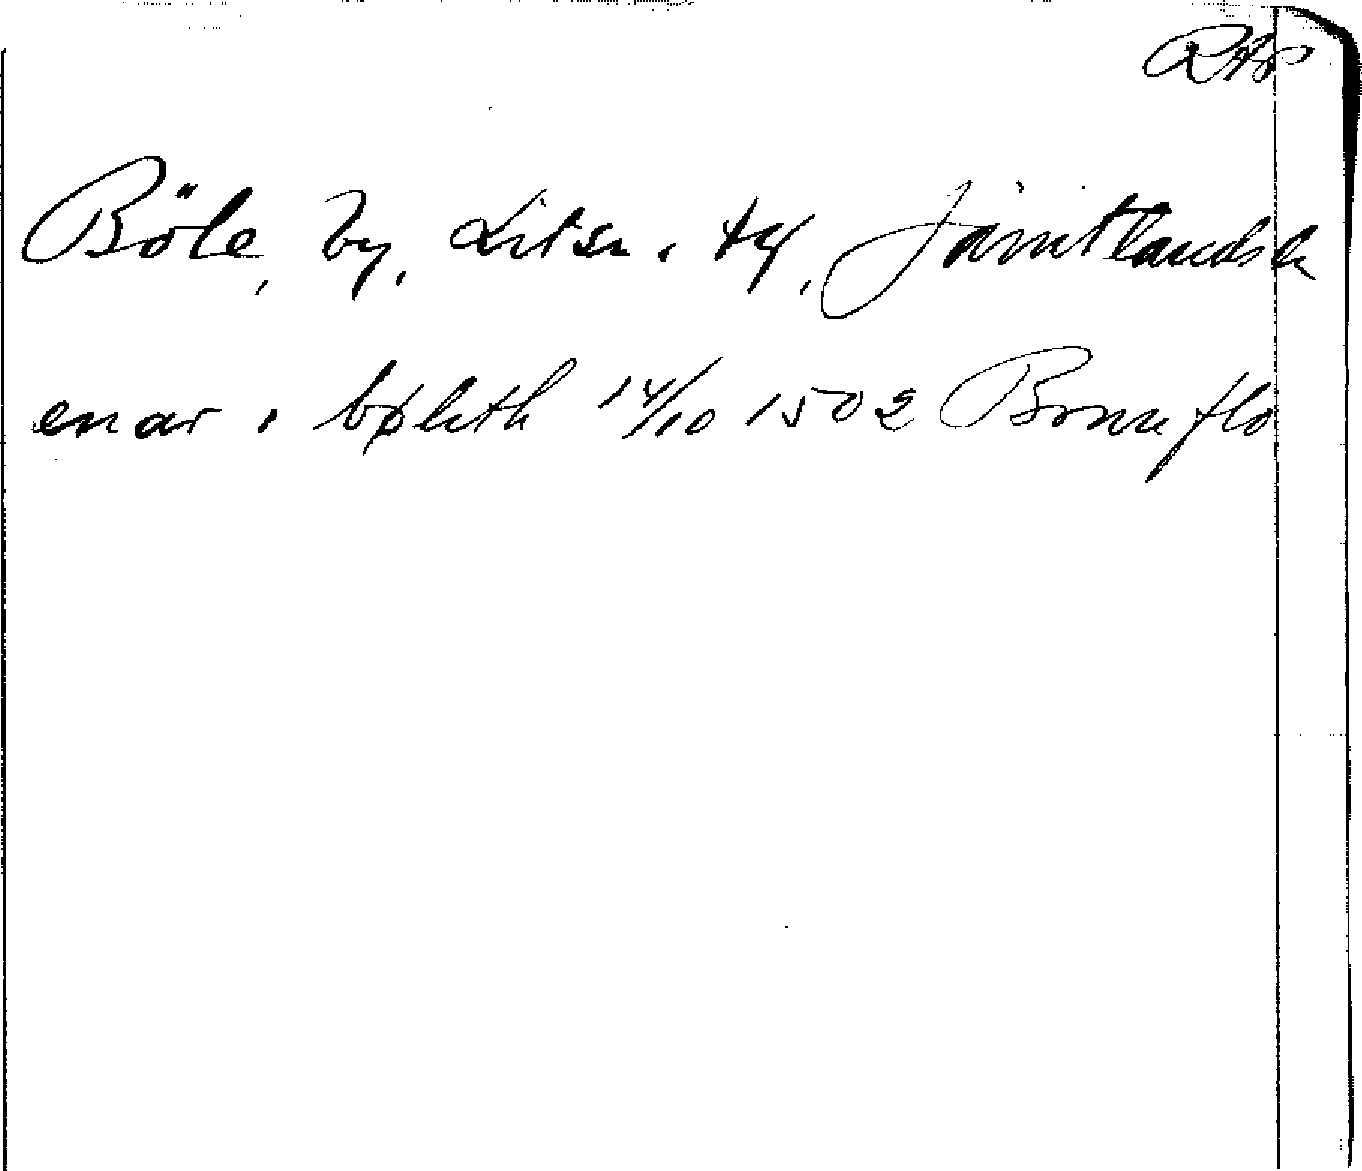 RAP
Böle, by, Lits sn. o. tg, Jämtlands l.
enar i bøleth 14/10 1502 Brunflo